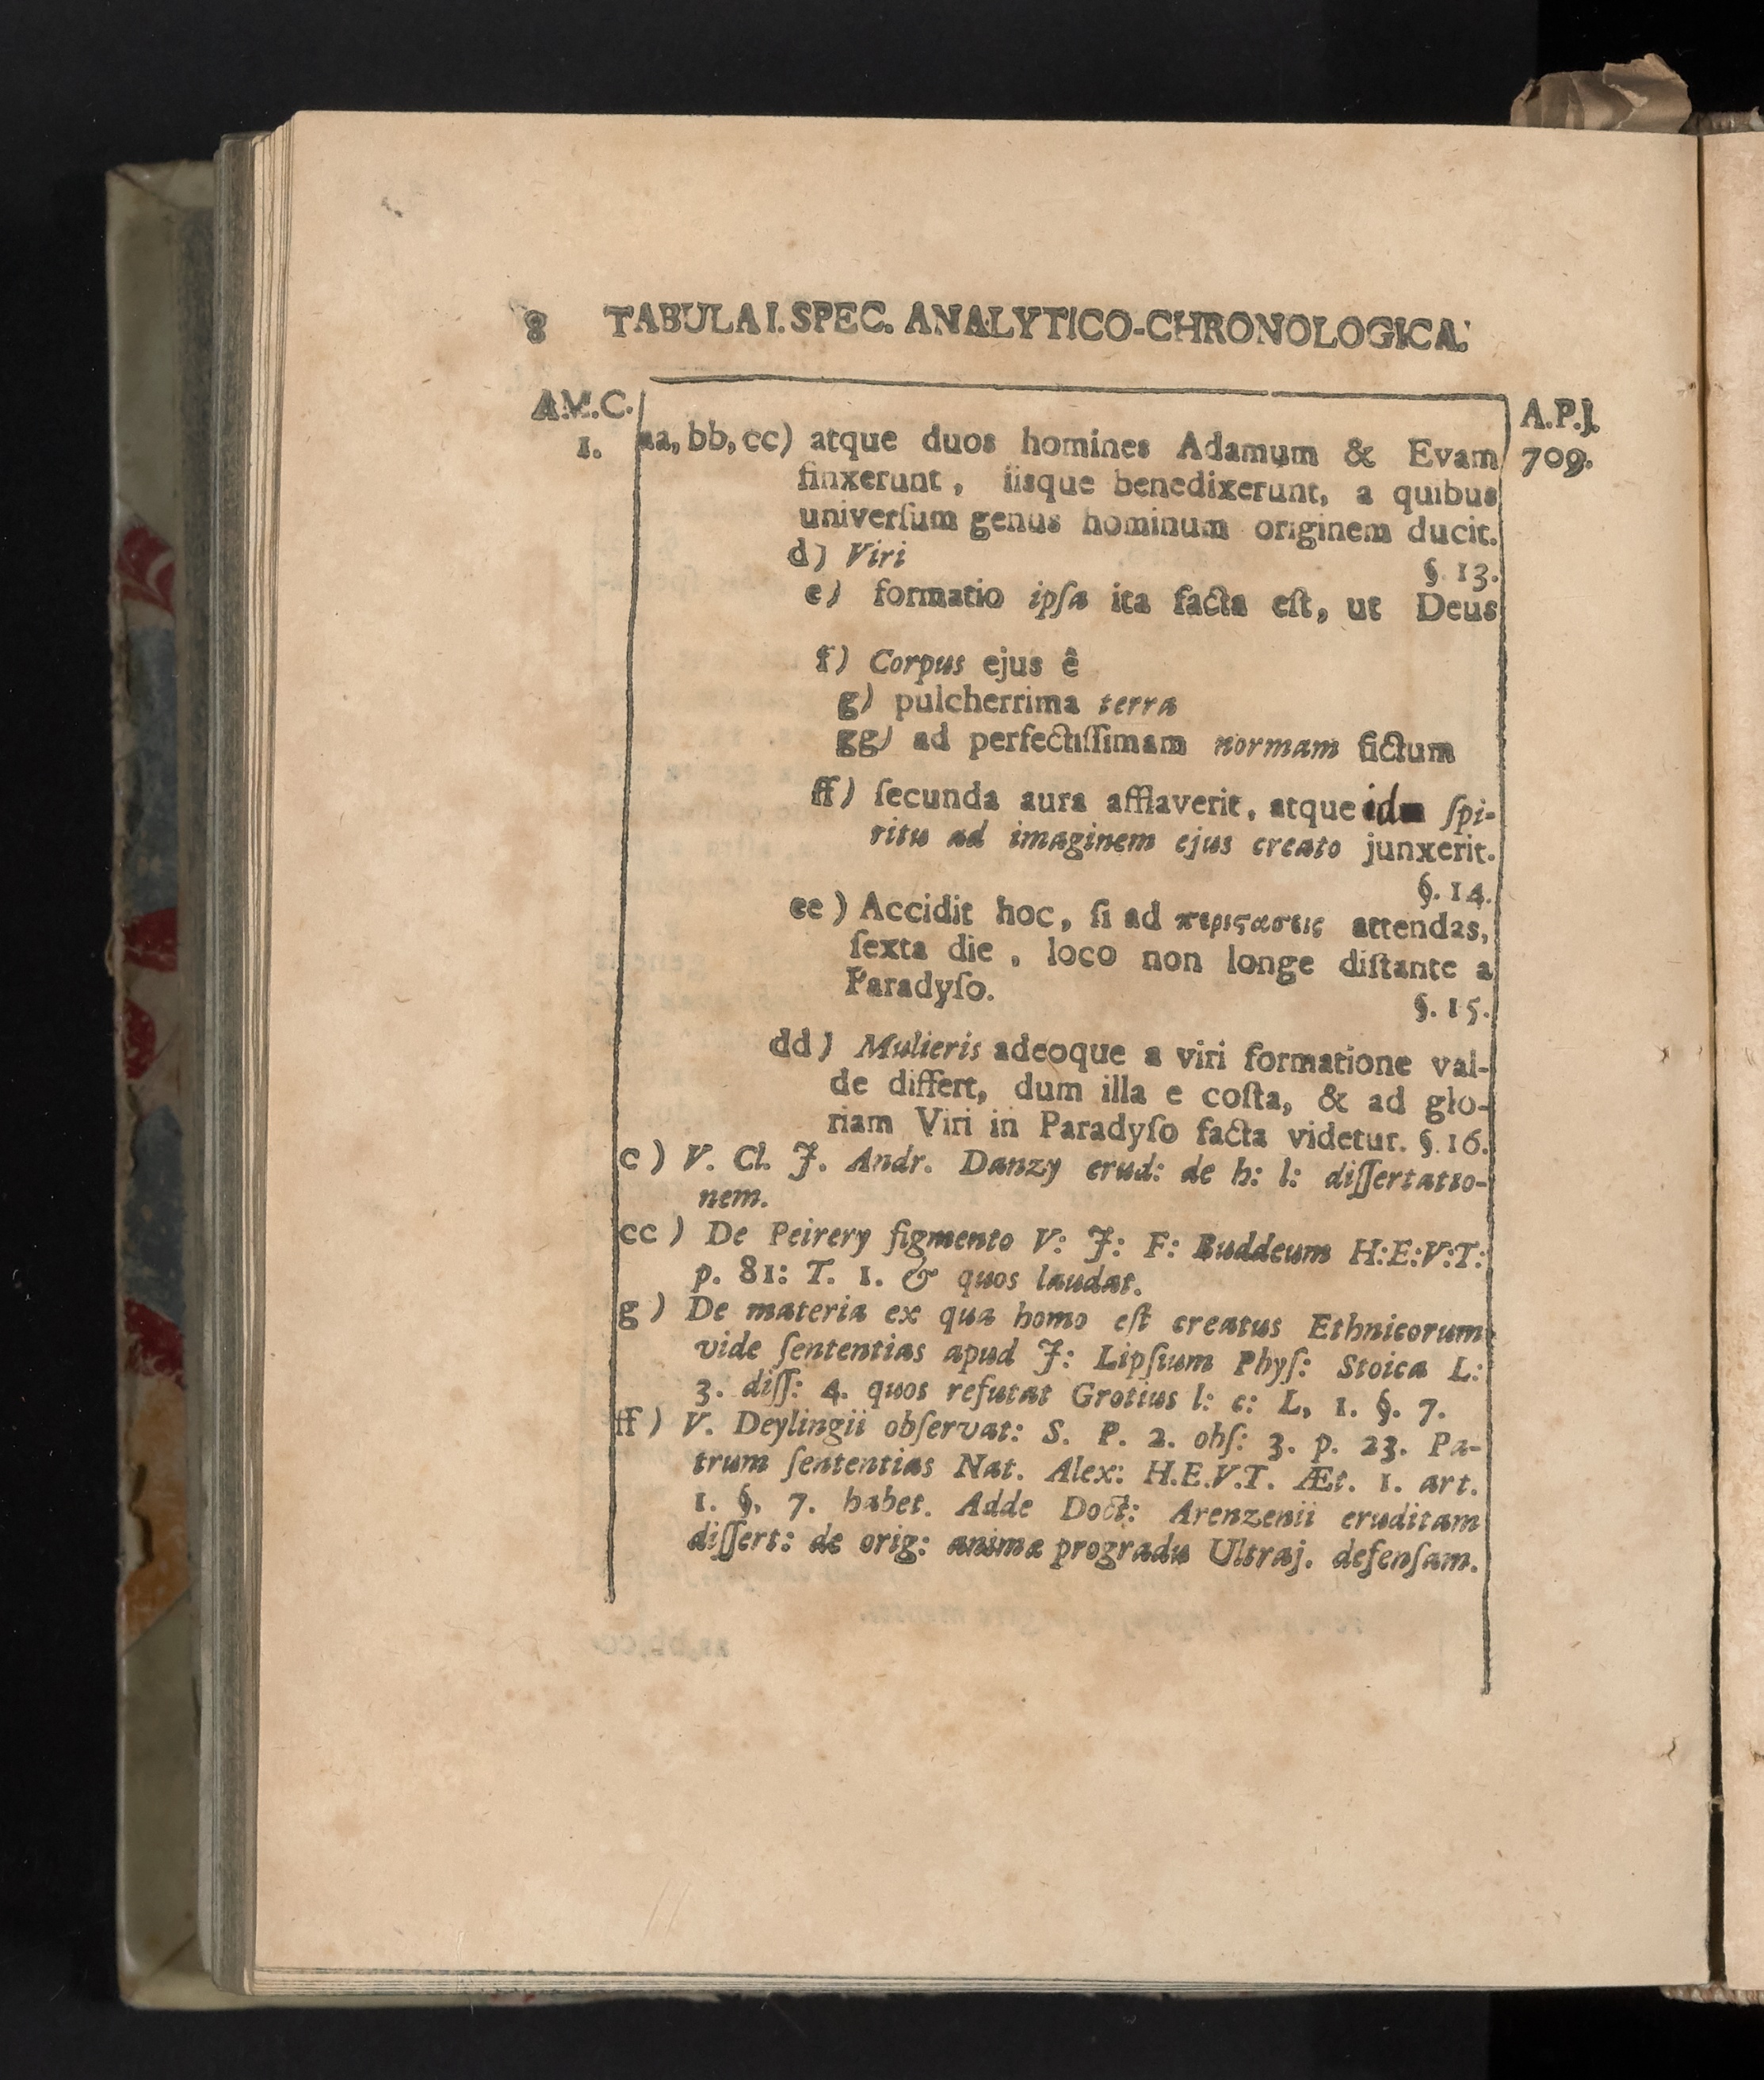 8 TABULA I. SPEC. ANALYTICO-CHRONOLOGICA.
A.M.C.
1.
A.P.J.
709.
aa, bb, cc) atque duos homines Adamum & Evam
finxerunt, iisque benedixerunt, a quibus
univerſum genus hominum originem ducit.
d) Viri §. 13.
e) formatio ipſa ita facta eſt, ut Deus
f) Corpus ejus ê
g) pulcherrima terra
gg) ad perfectiſſimam normam fictum
ff) ſecunda aura afflaverit, atque ſpi-
ritu ad imaginem ejus creato junxerit.
§. 14.
ee) Accidit hoc, ſi ad περιςασεις attendas,
ſexta die, loco non longe diſtante a
Paradyſo.
§. 15.
dd) Mulieris adeoque a viri formatione val-
de differt, dum illa e coſta, & ad glo-
riam Viri in Paradyſo facta videtur. §. 16.
c) V. Cl. J. Andr. Danzy erud: de h: l: diſſertatio-
nem.
cc) De Peirery figmento V: J: F: Buddeum H:E:V:T:
p. 81: T. 1. & quos laudat.
g) De materia ex qua homo eſt creatus Ethnicorum
vide ſententias apud J: Lipſium Phyſ: Stoica L:
3. diſſ: 4. quos refutat Grotius l: c: L, 1. §. 7.
ff) V. Deylingii obſervat: S. P. 2. obſ: 3. p. 23. Pa-
trum ſententias Nat. Alex: H.E.V.T. Æt. 1. art.
1. §. 7. habet. Adde Doct: Arenzenii eruditam
diſſert: de orig: animæ progradu Ultraj. defenſam.